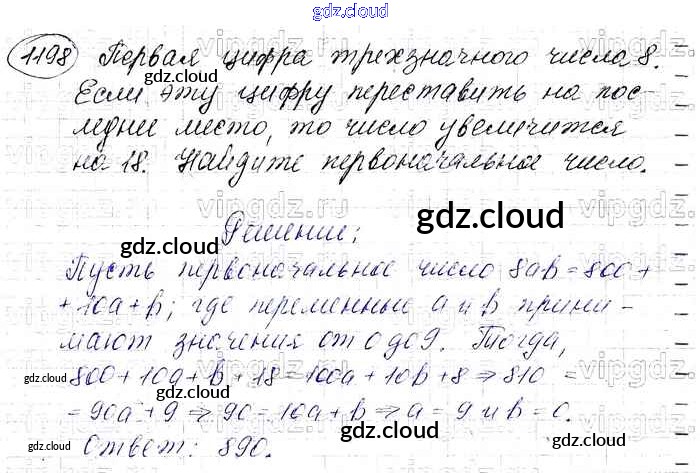 gdz.cloud
1198 Первая цифра трехзначного числа 8.
gdz.cloud
Если эту цифру переставить на пос-
леднее место, то число увеличится
на 18. Найдите первоначальное число.
vipgdz.ru
gdz.cloud
Решение:
gdz.cloud
Пусть первоначальное число 8ab = 800 +
+ 10a + b; где переменные a и b прини-
мают значения от 0 до 9. Тогда,
gdz.cloud
800 + 10a + b + 18 = 100a + 10b + 8 ⇒ 810 =
gdz.cloud
= 90a + 9 ⇒ 90 = 10a + b ⇒ a = 9 и b = 0.
gdz.cloud
Ответ: 890.
gdz.cloud
gdz.cloud